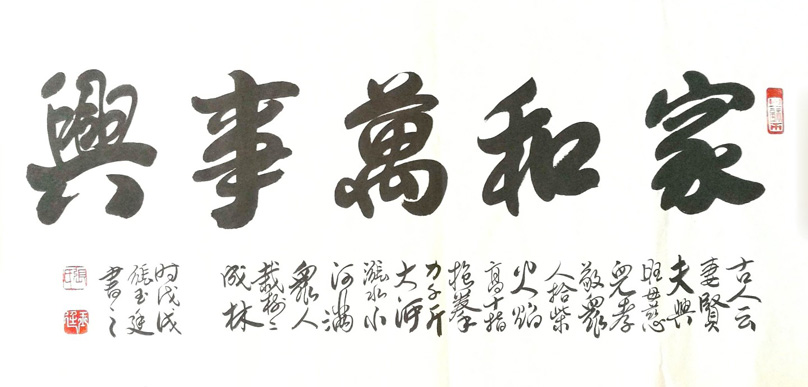 家和萬事興
古人云
妻賢
夫興
旺母慈
兒孝
敬眾
人拾柴
火焰
高十指
抱拳
力千斤
大河
漲水小
河滿
眾人
栽樹樹
成林
时戊戌
張玉廷
書之